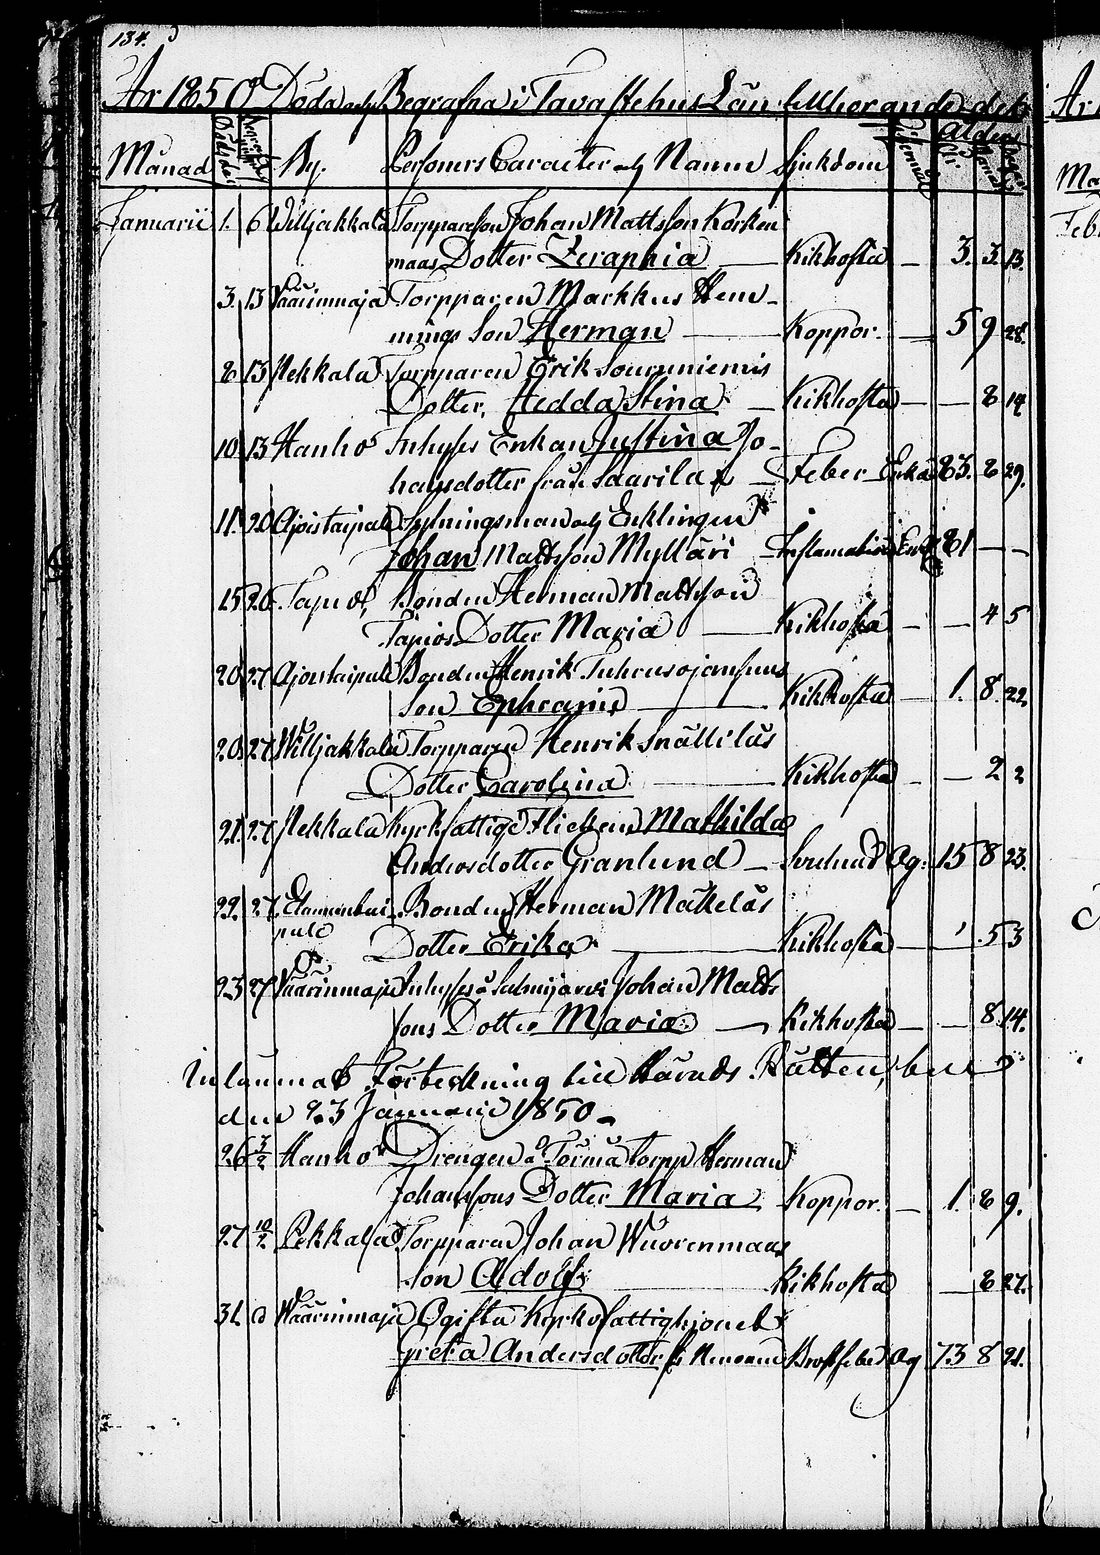 134.
År 1850 Döda och Begrafna i Tavastehus Län tillhörande del
Månad Dödsdag By. Persones Caracter och Namn Sjukdom Ålder År. Månad Dagar
Januarii 1. 6 Williakkala Torpparesson Johan Mattsson Korken
maas Dotter Zeraphia Kikhosta 3. 3 13.
3. 13 Väärinmaja Torpparen Markkus Hem-
mings Son Herman Koppor. 5 9 28.
8 13 Pekkala Torpparen Erik Souruniemis
Dotter, Hedda Stina Kikhosta 8 14
10. 13 Hanho Inhyses Enkan Justina Jo-
hansdotter från Saarila Feber Enka 83. 8 29.
11. 20 Ajostaipale Sytningsman och Enklingen
Johan Mattsson Mylläri Inflamation Enkl 81
15 20. Tapio Bonden Herman Mattsson
Tapios Dotter Maria Kikhosta 4 5
20 27 Ajostaipale Bonden Henrik
Son Ephraim Kikhosta 1. 8. 22
20. 27 Williakkala Torpparen Henrik Snällilus
Dotter Carolina Kikhosta 2 2
21. 27 Pekkala Kyrkfattige Flickan Mathilda
Andersdotter Granlund Og. 15 8 23.
22. 27. Bonden Herman Mäkeläs
pale Dotter Erika Kikhosta 1 5 3
23 27 Väärinmaja Inhyses å Salmijärvi Johan Matts
sons Dotter Maria Kikhosta 8 14.
Inlämnat Förtekning till Härads Rätten,
den 23 Januarii 1850.
26 3/2 Hanho Drengen å Törmä torpp Herman
Johanssons Dotter Maria Koppor. 1. 8 9.
27 10/2 Pekkala Torpparen Johan Wuorenmaas
Son Adolf Kikhosta 8 27.
31 d Väärinmaja Ogifta Kyrkofattighjonet
Greta Andersdotter Bröstfeber Og 73 8 21.
Ma
Feb